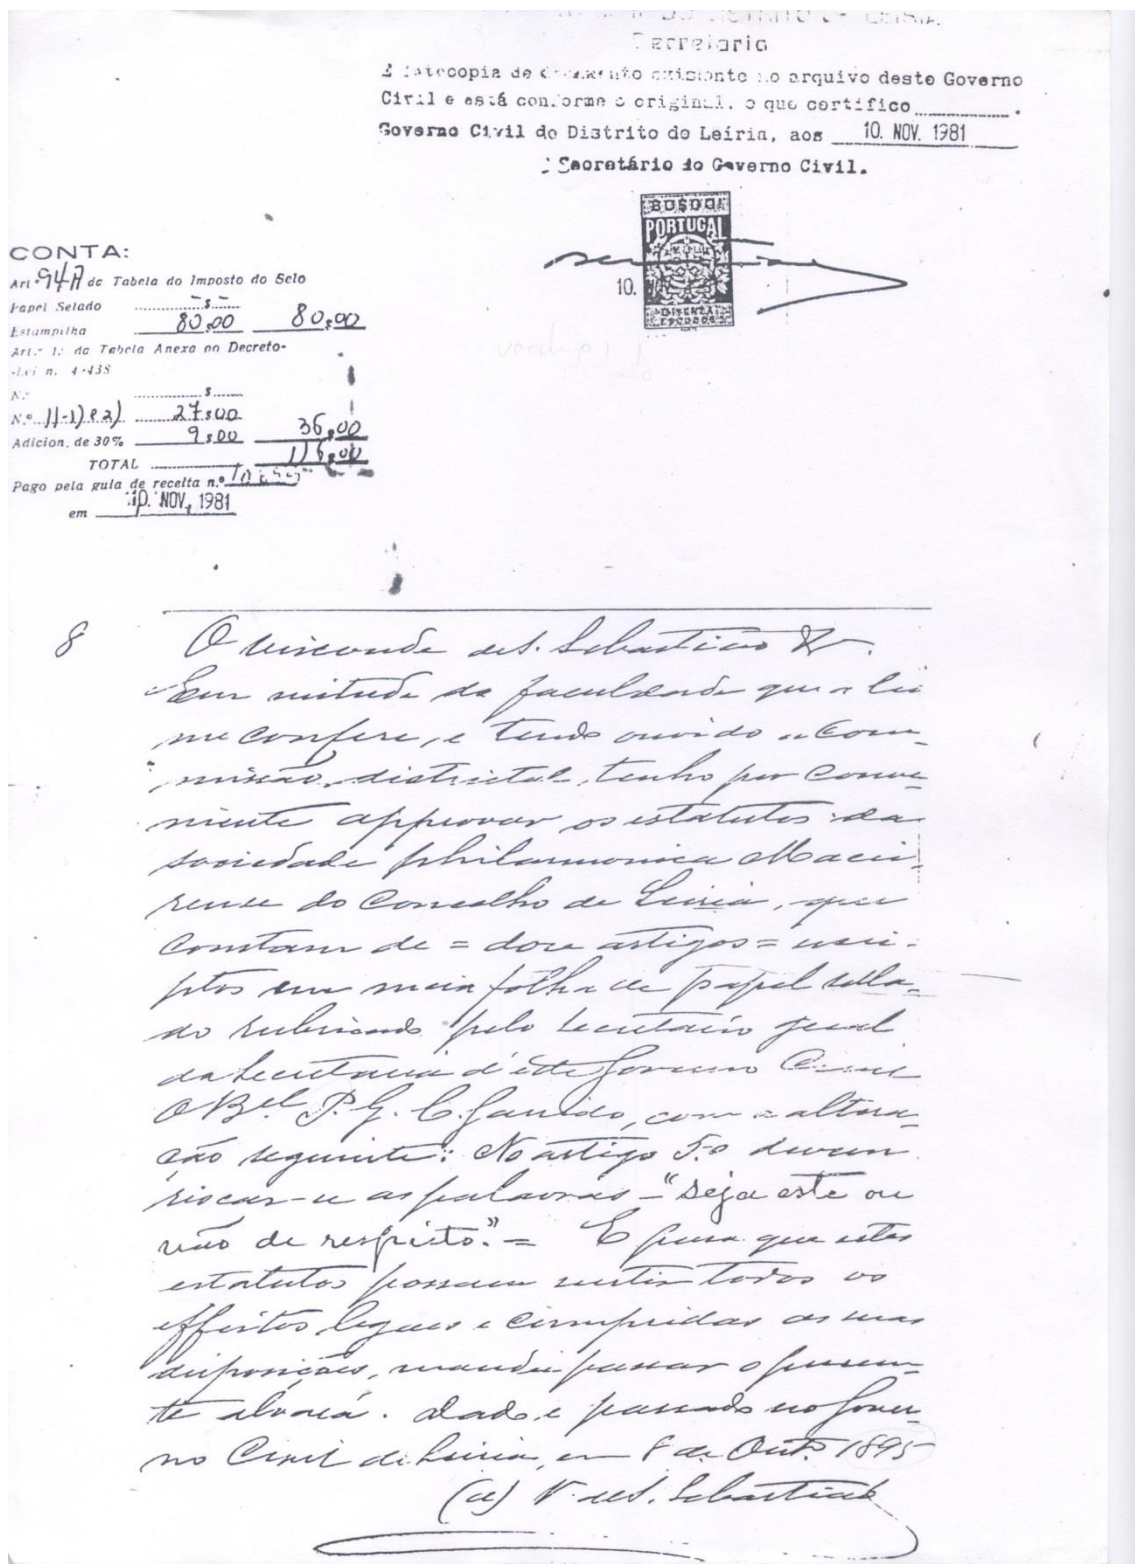 DISTRITO DE LEIRIA
Secretaria
É fotocopia de documento existente no arquivo deste Governo
Civil e está conforme o original, o que certifico
Governo Civil do Distrito de Leiria, aos 10. NOV. 1981
O Secretário do Governo Civil.
PORTUGAL
10.
CONTA:
Art.º 94A da Tabela do Imposto do Selo
Papel Selado -$-
Estampilha 80$00 80$00
Art.º 1.º da Tabela Anexa ao Decreto-
-Lei n. 4-438
N.º $
N.º 11-1) e 2) 27$00
Adicion. de 30% 9$00 36$00
TOTAL 116$00
Pago pela guia de receita n.º
em 10. NOV. 1981
8
O Visconde de S. Sebastião &.
Em virtude da faculdade que a lei
me confere, e tendo ouvido a Com-
missão districtal, tenho por conve-
niente approvar os estatutos da
sociedade philarmonica Macei-
rense do Concelho de Leiria, que
constam de = doze artigos = escri-
ptos em meia folha de papel sella-
do rubricado pelo secretario geral
da Secretaria d'este Governo Civil
O Bel. P. G. C. Garrido, com a altera-
ção seguinte: No artigo 5.º devem
riscar-se as palavras - "seja este ou
não de respeito." = E para que estes
estatutos possam surtir todos os
effeitos legaes e cumpridas as suas
disposições, mandei passar o presen-
te alvará. Dado e passado no Gover-
no Civil de Leiria, em 8 de Outº. 1895
(a) V. de S. Sebastião